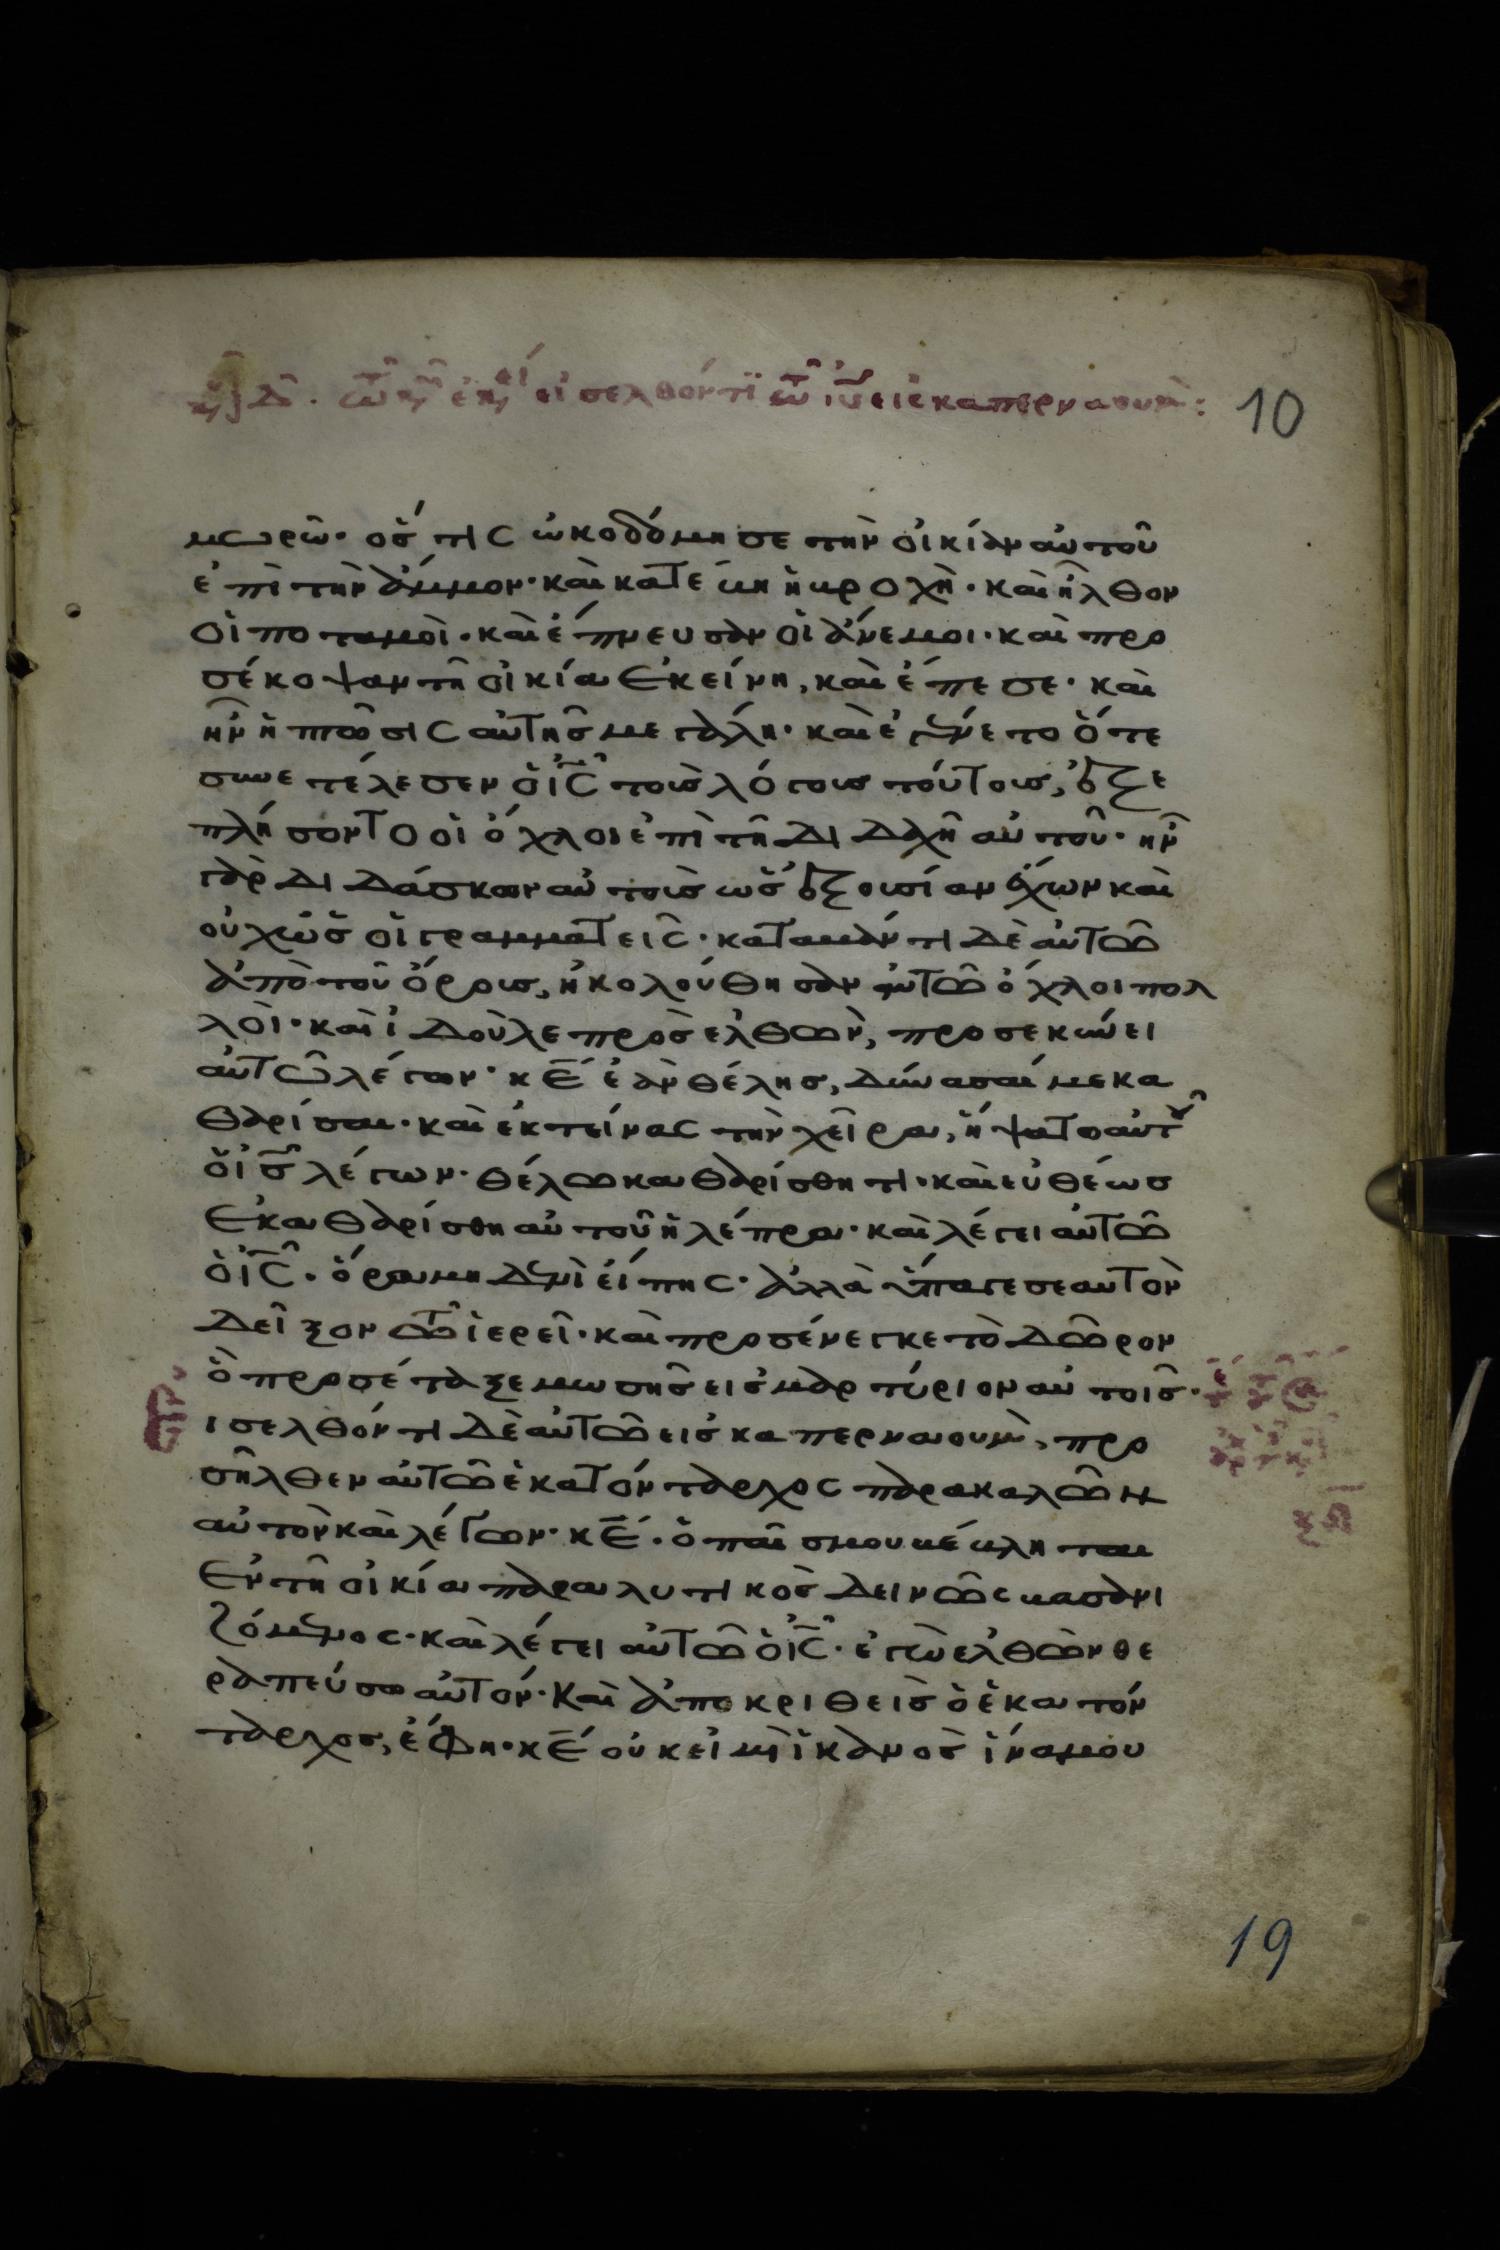 εἰσελθόντι τῶ ἰῦ εἰς καπερναουμ: 10
μωρῶ· ὅστις ὠκοδόμησε τὴν οἰκίαν αὐτοῦ
ἐπὶ τὴν ἄμμον· καὶ κατέβη ἡ βροχὴ· καὶ ἦλθον
οἱ ποταμοὶ· καὶ ἔπνευσαν οἱ ἄνεμοι· καὶ προ
σέκοψαν τῆ οἰκία ἐκείνη, καὶ ἔπεσε· καὶ
ἦν ἡ πτῶσις αὐτῆς μεγάλη· καὶ ἐγένετο ὅτε
συνετέλεσεν ὁ ἰς̅ τοὺς λόγους τούτους, ἐξε
πλήσοντο οἱ ὄχλοι ἐπὶ τῆ διδαχῆ αὐτοῦ· ἦν
γὰρ διδάσκων αὐτοὺς ὡς ἐξουσίαν ἔχων καὶ
οὐχ ὡς οἱ γραμματεῖς· καταβάντι δὲ αὐτῶ
ἀπὸ τοῦ ὄρους, ἠκολούθησαν αὐτῶ ὄχλοι πολ
λοὶ· καὶ ἰδοὺ λεπρὸς ἐλθὼν, προσεκύνει
αὐτῶ λέγων· κε̅ ἐὰν θέλης, δύνασαί με κα
θαρίσαι· καὶ ἐκτείνας τὴν χεῖρα, ἥψατο αὐτοῦ
ὁ ἰς̅ λέγων· θέλω καθαρίσθητι· καὶ εὐθέως
ἐκαθαρίσθη αὐτοῦ ἡ λέπρα· καὶ λέγει αὐτῶ
ὁ ἰς̅· ὅρα μηδενὶ εἴπης· ἀλλὰ ὕπαγε σεαυτὸν
δεῖξον τῶ ἱερεῖ· καὶ προσένεγκε τὸ δῶρον
ὃ προσέταξε μωσῆς εἰς μαρτύριον αὐτοῖς·
ισελθόντι δὲ αὐτῶ εἰς καπερναουμ, προ
σῆλθεν αὐτῶ ἑκατόνταρχος παρακαλῶν
αὐτὸν καὶ λέγων· κε̅· ὁ παῖς μου βέβληται
ἐν τῆ οἰκία παραλυτικὸς δεινῶς βασανι
ζόμενος· καὶ λέγει αὐτῶ ὁ ἰς̅· ἐγὼ ἐλθὼν θε
ραπεύσω αὐτόν· καὶ ἀποκριθεὶς ὁ ἑκατόν
ταρχος, ἔφη· κε̅ οὐκ εἰμὶ ἱκανὸς ἵνα μου
19